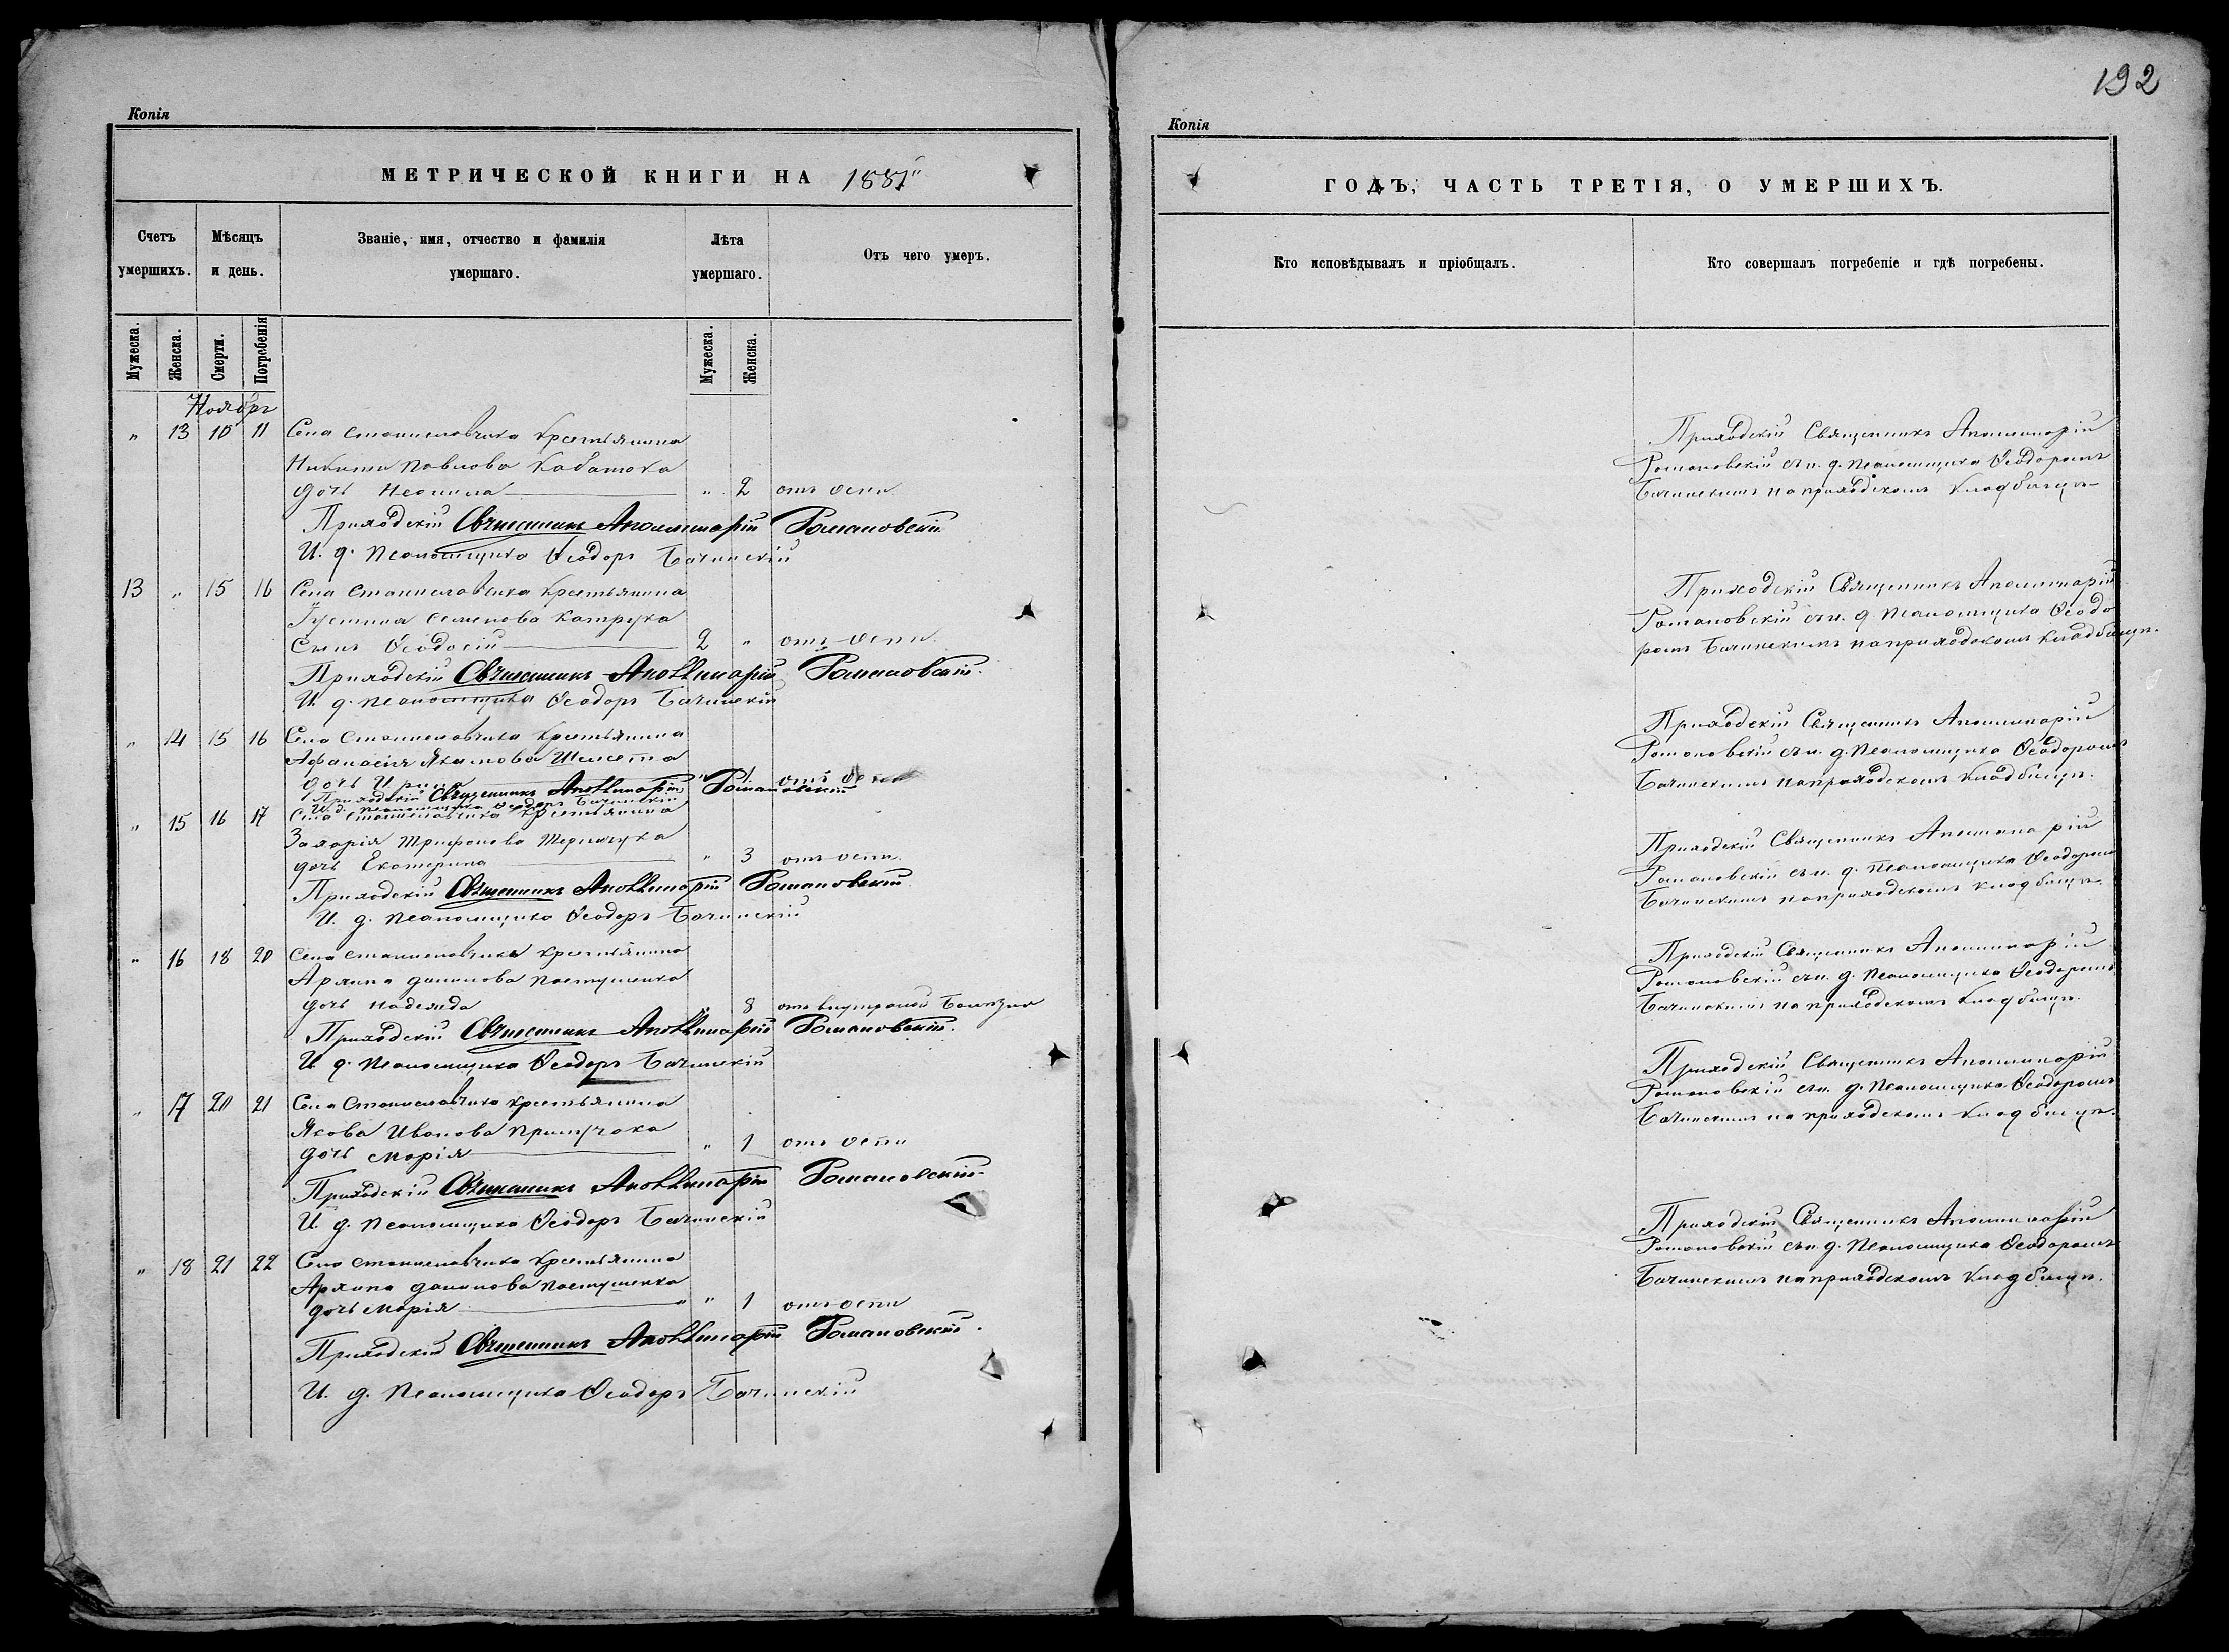 Копія
МЕТРИЧЕСКОЙ КНИГИ НА 1881
Счетъ умершихъ.
Мѣсяцъ и день.
Званіе, имя, отчество и фамилія умершаго.
Лѣта умершаго.
Отъ чего умеръ.
Мужеска.
Женска.
Смерти.
Погребенія
Мужеска.
Женска.
Ноябрь
" 13 10 11 Села Станиславчика крестьянина
Никиты Павлова
дочь Неонила " 2 отъ оспи
Приходскій Священникъ Аполлинарій Романовскій
И. д. Псаломщика Ѳеодоръ Бачинскій
13 " 15 16 Села Станиславчика крестьянина
Іустина Семенова Катрука
Сынъ Ѳеодосій 2 " отъ оспи
Приходскій Священникъ Аполлинарій Романовскій.
И. д. Псаломщика Ѳеодоръ Бачинскій
" 14 15 16 Села Станиславчика крестьянина
Афанасія Якимова
дочь Ирина " 1 отъ оспи
Приходскій Священникъ Аполлинарій Романовскій
И. д. Псаломщика Ѳеодоръ Бачинскій
" 15 16 17 Села Станиславчика крестьянина
Захарія Трифонова
дочь Екатерина " 3 отъ оспи.
Приходскій Священникъ Аполлинарій Романовскій.
И. д. Псаломщика Ѳеодоръ Бачинскій
" 16 18 20 Села Станиславчика крестьянина
Архипа Данилова Пастушенка
дочь Надежда " 8 отъ болѣзни
Приходскій Священникъ Аполлинарій Романовскій.
И. д. Псаломщика Ѳеодоръ Бачинскій
" 17 20 21 Села Станиславчика крестьянина
Якова Иванова
дочь Марія " 1 отъ оспи
Приходскій Священникъ Аполлинарій Романовскій
И. д. Псаломщика Ѳеодоръ Бачинскій
" 18 21 22 Села Станиславчика крестьянина
Архипа Данилова Пастушенка
дочь Марія " " 1 отъ оспи
Приходскій Священникъ Аполлинарій Романовскій.
И. д. Псаломщика Ѳеодоръ Бачинскій
192
Копія
ГОДЪ, ЧАСТЬ ТРЕТІЯ, О УМЕРШИХЪ.
Кто исповѣдывалъ и пріобщалъ.
Кто совершалъ погребеніе и гдѣ погребены.
Приходскій Священникъ Аполлинарій
Романовскій съ и. д. Псаломщика Ѳеодоромъ
Бачинскимъ на приходскомъ кладбищѣ
Приходскій Священникъ Аполлинарій
Романовскій съ и. д. Псаломщика Ѳеодо
ромъ Бачинскимъ на приходскомъ кладбищѣ.
Приходскій Священникъ Аполлинарій
Романовскій съ и. д. Псаломщика Ѳеодоромъ
Бачинскимъ на приходскомъ кладбищѣ.
Приходскій Священникъ Аполлинарій
Романовскій съ и. д. Псаломщика Ѳеодоромъ
Бачинскимъ на приходскомъ кладбищѣ.
Приходскій Священникъ Аполлинарій
Романовскій съ и. д. Псаломщика Ѳеодоромъ
Бачинскимъ на приходскомъ кладбищѣ.
Приходскій Священникъ Аполлинарій
Романовскій съ и. д. Псаломщика Ѳеодоромъ
Бачинскимъ на приходскомъ кладбищѣ.
Приходскій Священникъ Аполлинарій
Романовскій съ и. д. Псаломщика Ѳеодоромъ
Бачинскимъ на приходскомъ кладбищѣ.